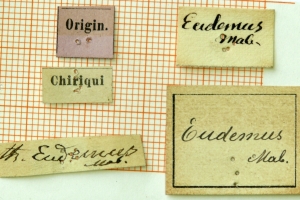 Origin.
Eudemus
Mab.
Chiriqui
Th. Eudemus
Mab.
Eudemus
Mab.